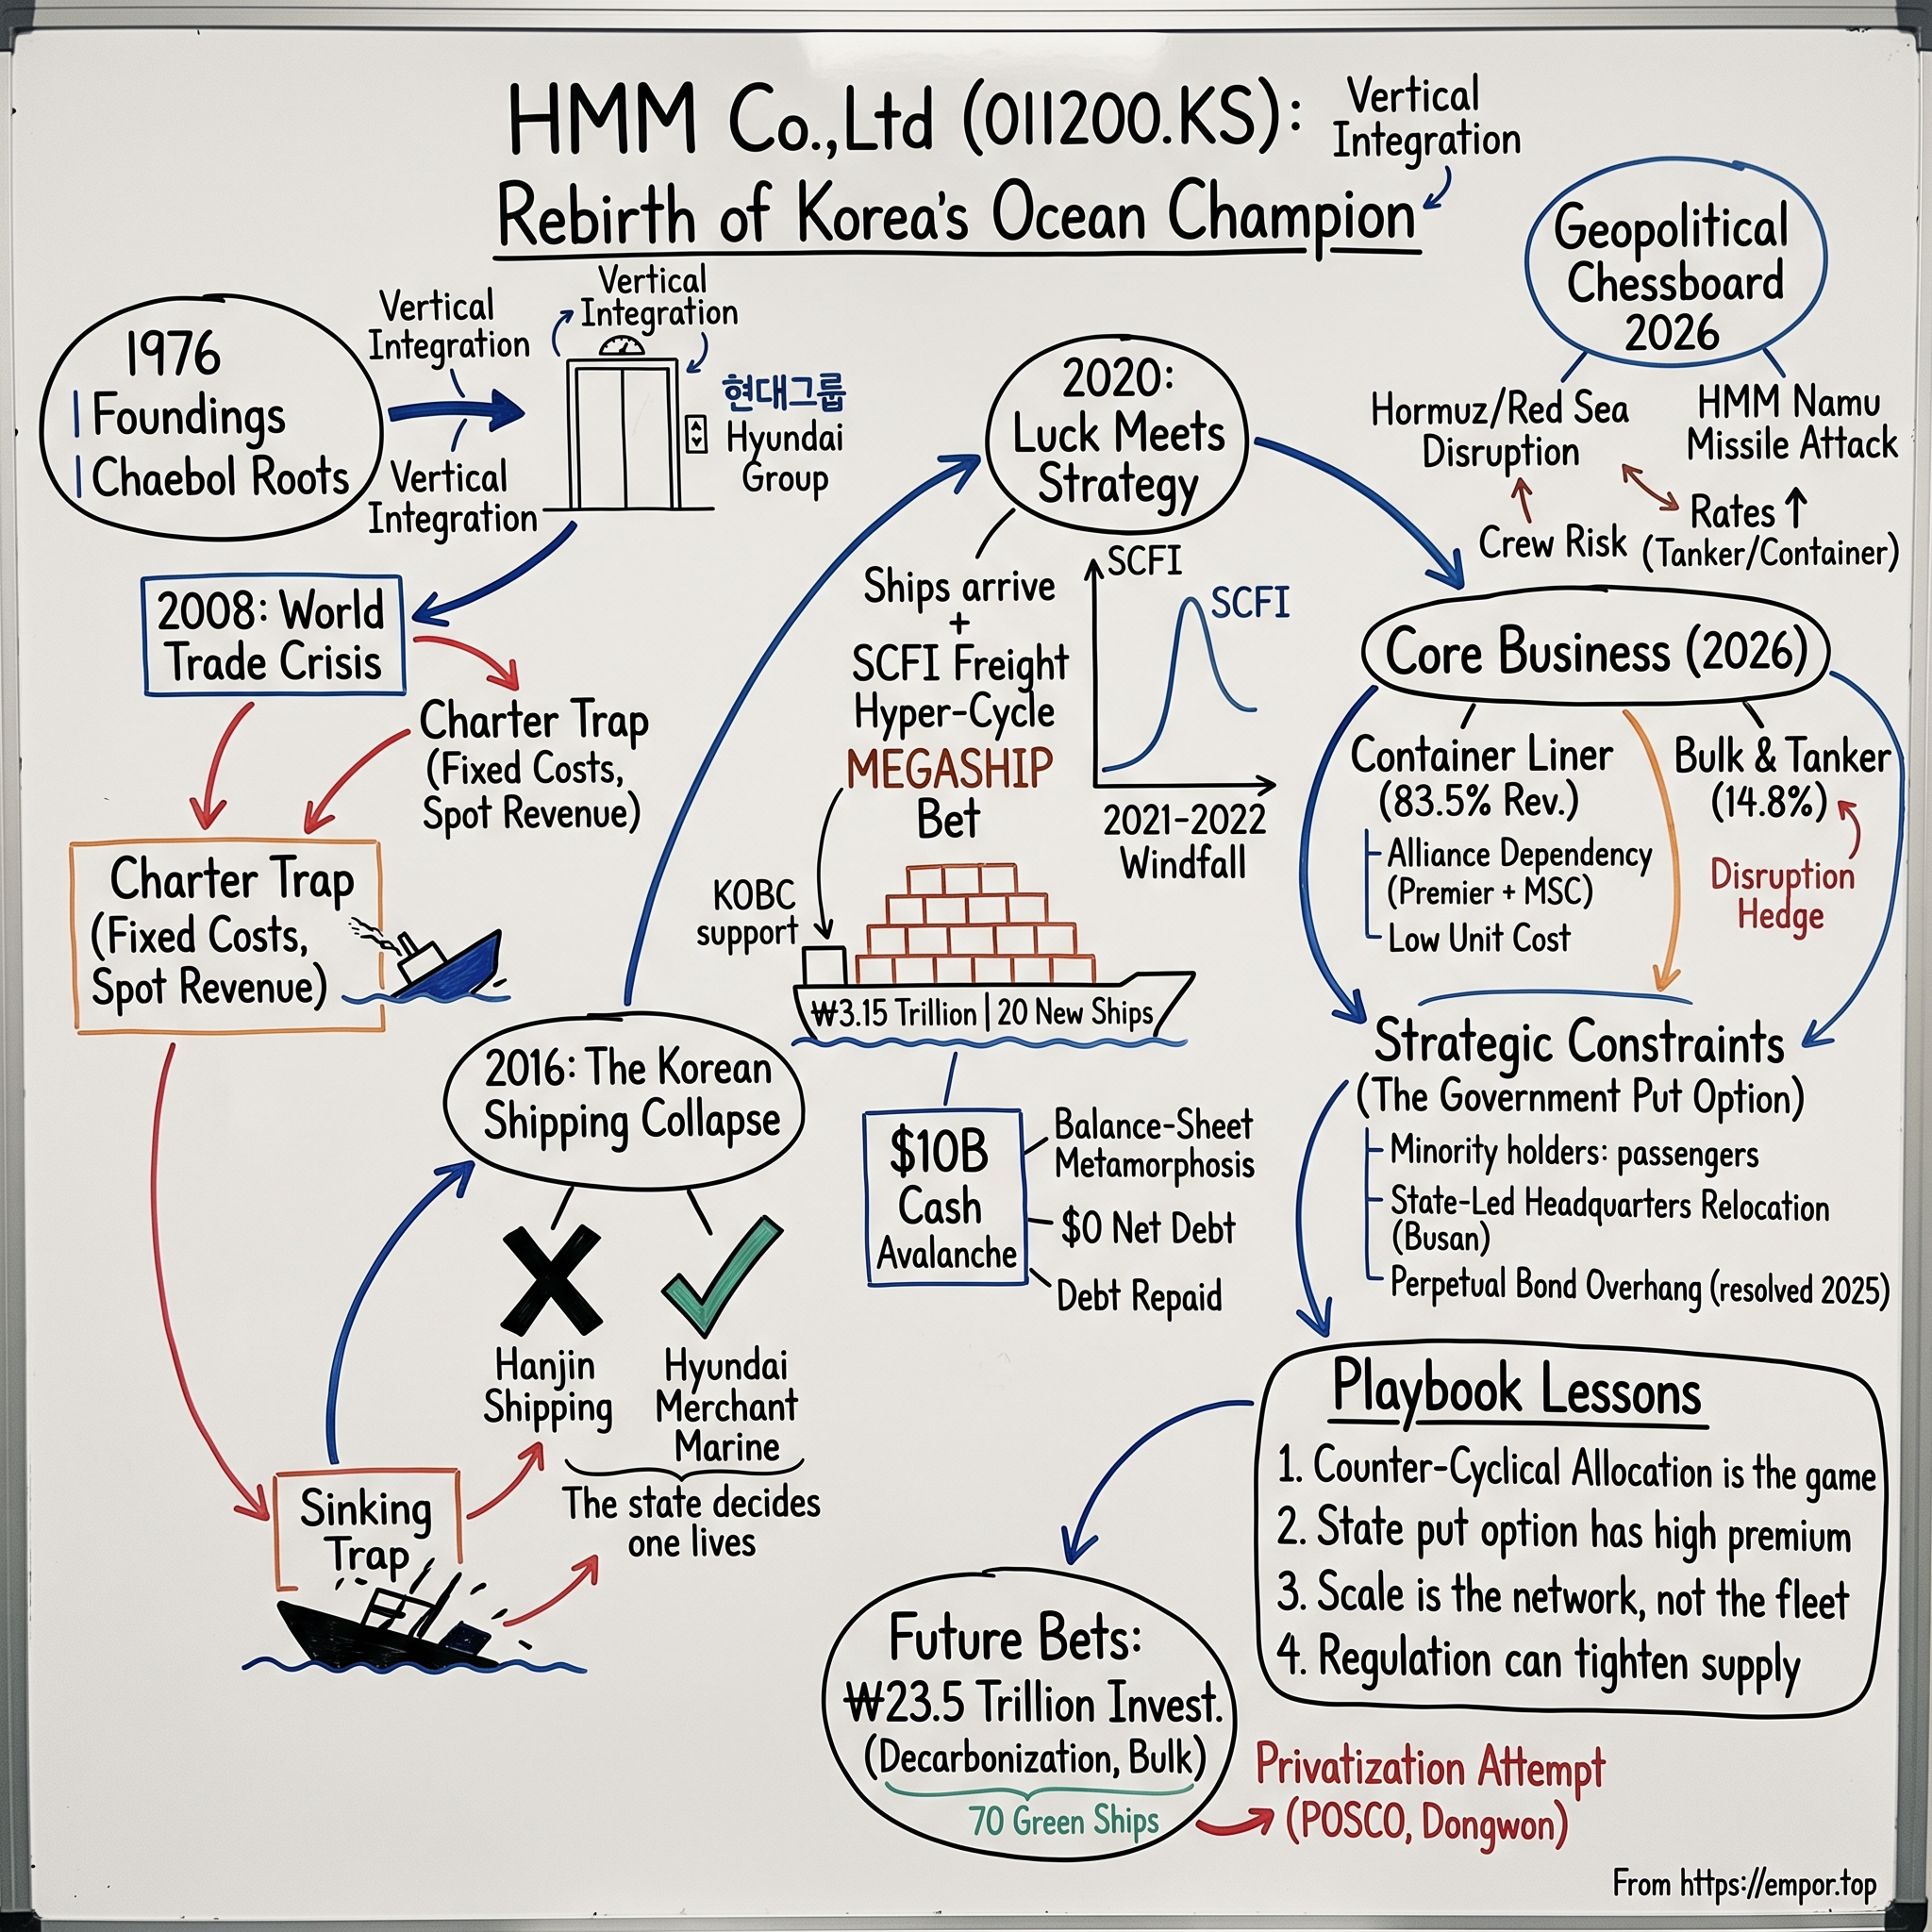 HMM Co.,Ltd (011200.KS):
Rebirth of Korea's Ocean Champion
Vertical
Integration
1976
Foundings
Chaebol Roots
Vertical
Integration
Vertical
Integration
Vertical
Integration
현대그룹
Hyundai
Group
2008: World
Trade Crisis
Charter Trap
(Fixed Costs,
Spot Revenue)
Charter Trap
(Fixed Costs,
Spot Revenue)
Sinking
Trap
2016: The Korean
Shipping Collapse
Hanjin
Shipping
Hyundai
Merchant
Marine
The state decides
one lives
2020:
Luck Meets
Strategy
Ships arrive
+
SCFI Freight
Hyper-Cycle
MEGASHIP
Bet
SCFI
SCFI
2021-2022
Windfall
KOBC
support
₩3.15 Trillion | 20 New Ships
$10B
Cash
Avalanche
Balance-Sheet
Metamorphosis
$0 Net Debt
Debt Repaid
Geopolitical
Chessboard
2026
Hormuz/Red Sea
Disruption
HMM Namu
Missile Attack
Crew Risk
Rates ↑
(Tanker/Container)
Core Business (2026)
Container Liner
(83.5% Rev.)
Alliance Dependency
(Premier + MSC)
Low Unit Cost
Bulk & Tanker
(14.8%)
Disruption
Hedge
Strategic Constraints
(The Government Put Option)
Minority holders: passengers
State-Led Headquarters Relocation
(Busan)
Perpetual Bond Overhang (resolved 2025)
Playbook Lessons
1. Counter-Cyclical Allocation is the game
2. State put option has high premium
3. Scale is the network, not the fleet
4. Regulation can tighten supply
Future Bets:
₩23.5 Trillion Invest.
(Decarbonization, Bulk)
70 Green Ships
Privatization Attempt
(POSCO, Dongwon)
From https://empor.top